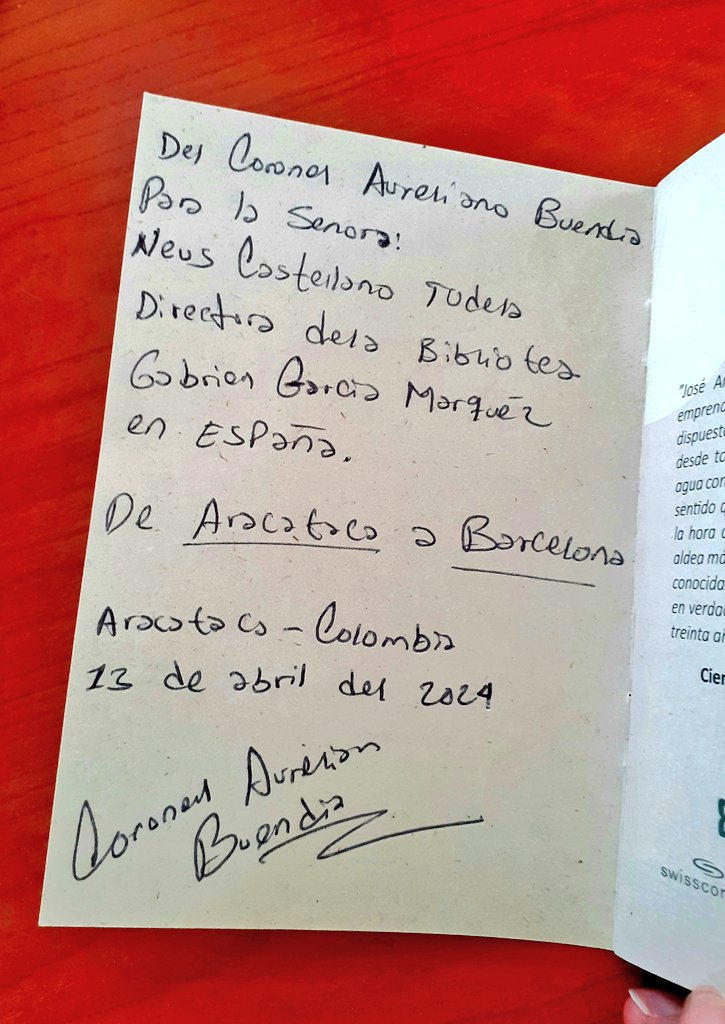 Del Coronel Aureliano Buendia
Para la Señora:
Neus Castellano Tudela
Directora dela Bibliotea
Gabriel García Marquéz
en ESPAÑA.
De Aracataca a Barcelona
Aracataca - Colombia
13 de abril del 2024
Coronel Aurelian
Buendia
"José A
emprend
dispuest
desde to
agua con
sentido
la hora
aldea má
conocida
en verda
treinta a
Cien
swisscon